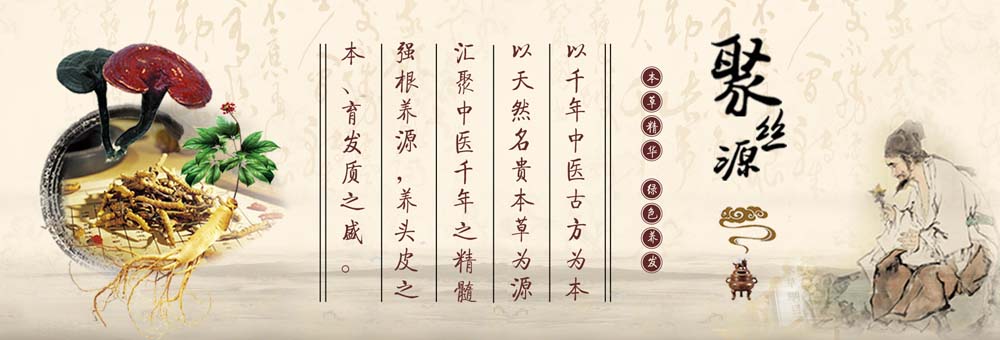 聚丝源
本草精华 绿色养发
以千年中医古方为本
以天然名贵本草为源
汇聚中医千年之精髓
强根养源，养头皮之
本、育发质之盛。